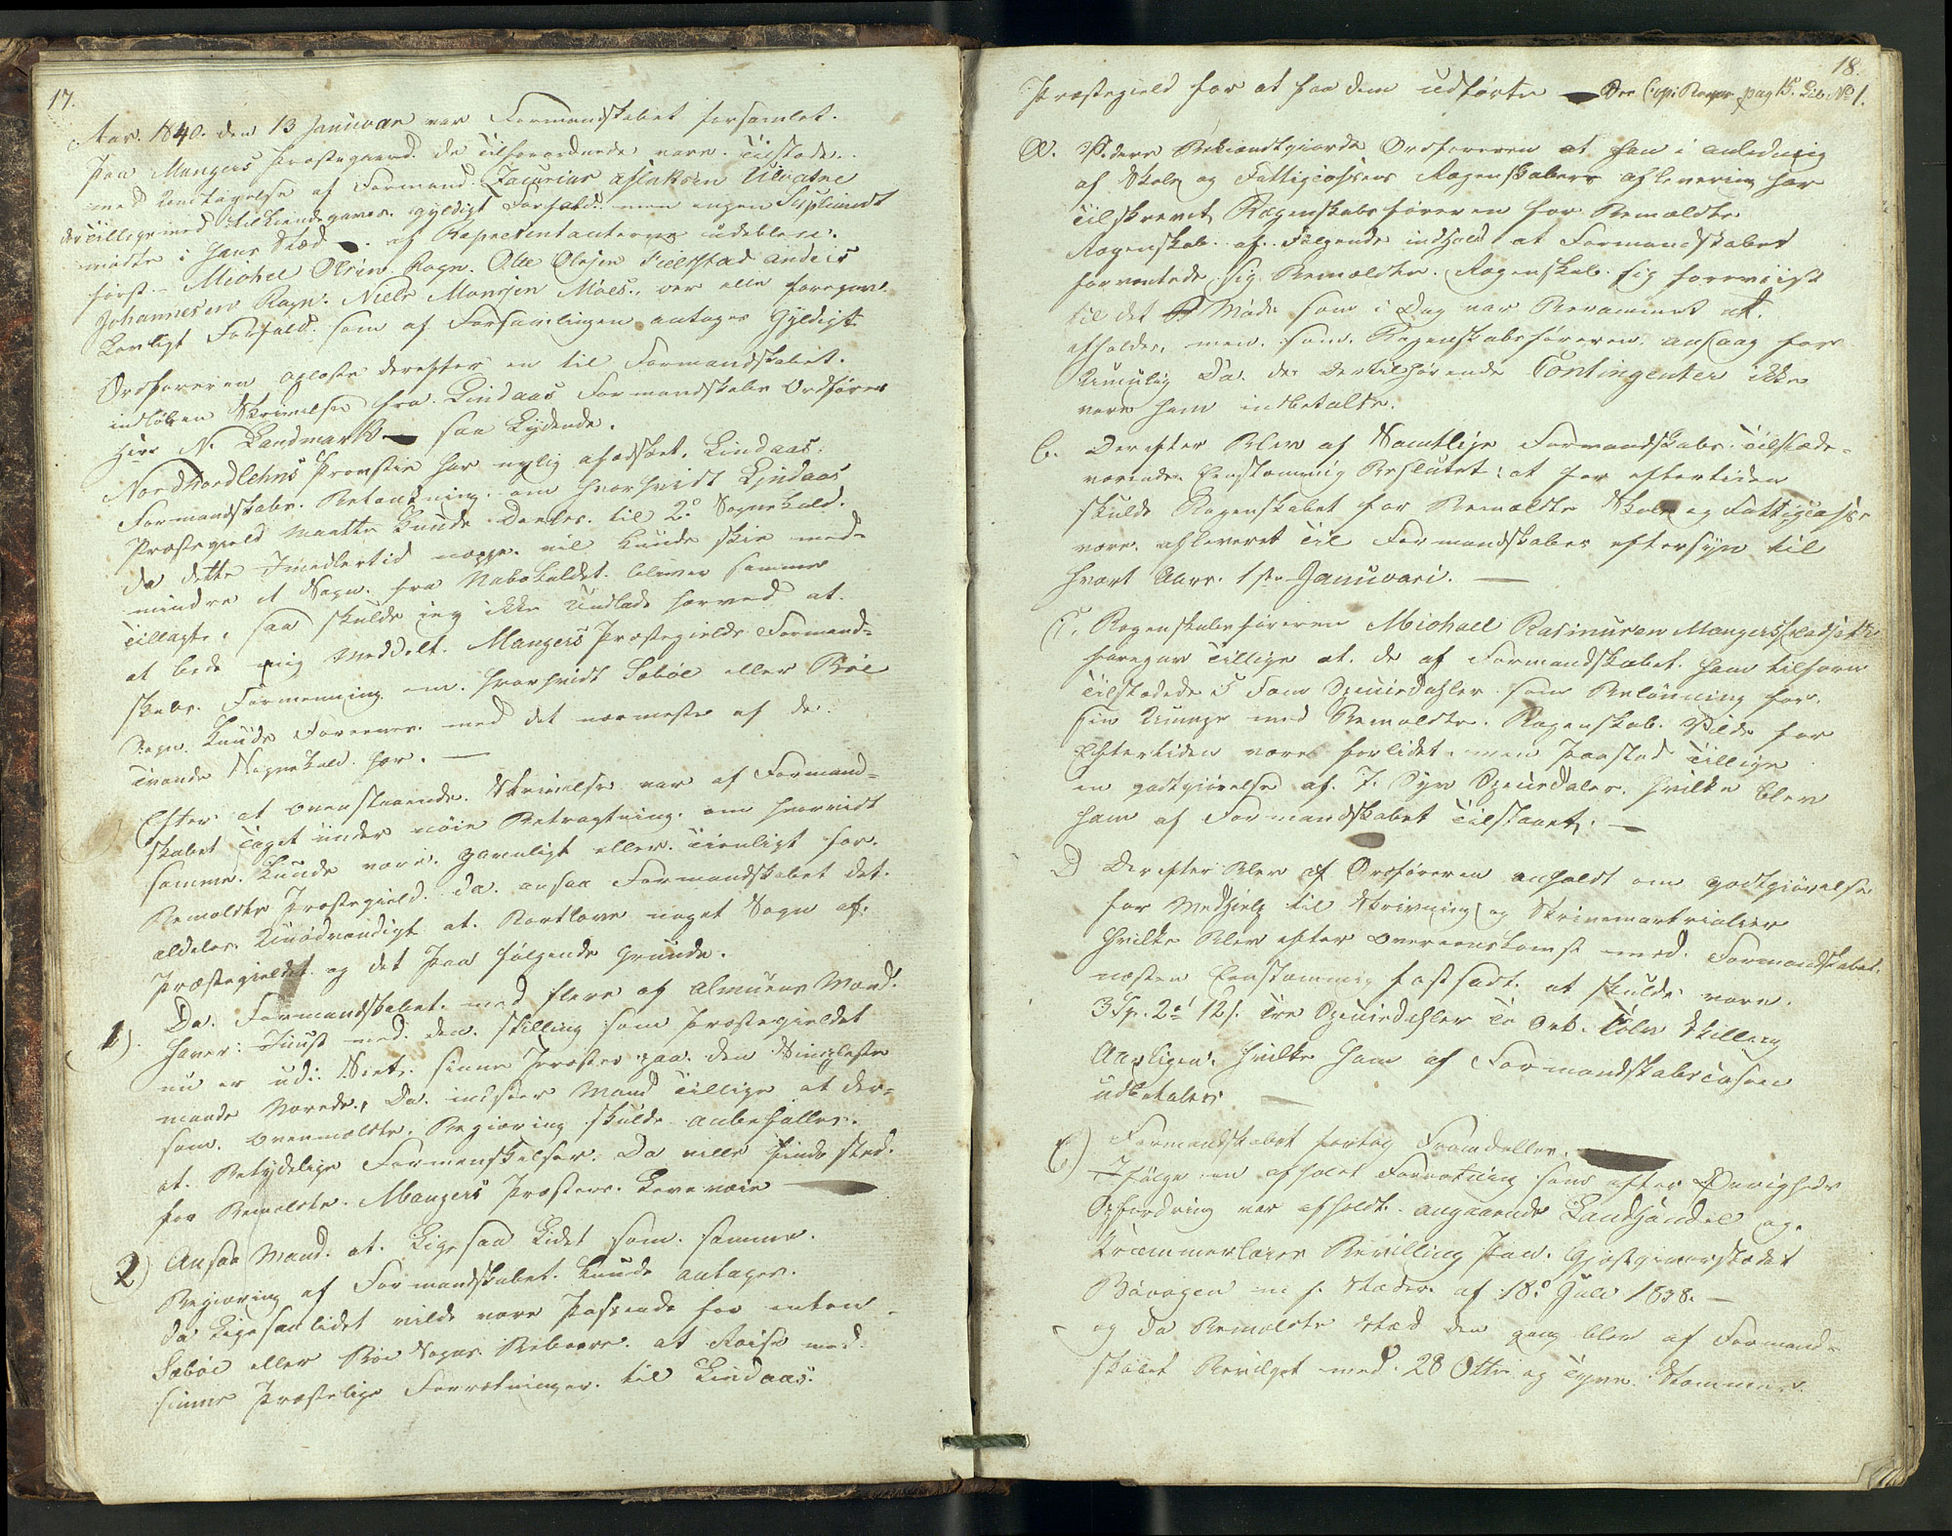 17.
Aar. 1840. den 13 Januvar var Formandskabet forsamlet.
paa Mangers Præstegaard. de Tilforordnede vare. Tilstæde.
med Undtagelse af Formand. Zacarias Aslaksen Ulvatne
der Tillige med tilkiendegaves. gyldigt Forfald. men ingen Supliandt
mødte i hans Stæd. af Representanterne udeblev.
først. Michel Olsen Rogn. Ole Olsen Fielstad Anders
Johannesen Rogn. Niels Monsen Møes. der alle foregav
Lovligt Forfald. som af Forsamlingen antages Gyldigt.
Ordføreren oplæste derefter en til Formandskabet.
indløben Skrivelse fra Lindaas Formandskabs Ordfører
Herr N. Landmark saa Lydende.
Nordhordlehns Provstie har nylig afædsket. Lindaas.
Formandskabs. Betænkning. om hvorhvidt Lindaas
Præstegield maatte kunde Deeles. til 2de Sognekald.
da dette Imedlertid neppe. vil kunde skie med-
mindre et Sogn. fra Nabokaldet. bliver samme
Tillagt, saa skulde jeg ikke Undlade herved at.
at bede mig Meddelt. Mangers Præstegields Formand-
skabs. Formenning om. hvorhvidt Sæbøe eller Bøe
Sogn. kunde Foreenes. med det nærmeste af de
Tvende Sognekald. her. —
Efter at ovenstaaende. Skrivelse var af Formand-
skabet Taget under nøie Betragtning. om hvorvidt
samme. kunde være. gavnligt eller. Tienligt for.
Bemeldte Præstegield. da. ansaa Formandskabet det.
aldeles. Unødvendigt at. Bortlove noget Sogn af.
Præstegieldet og det paa følgende Grunde.
1) Da. Formandskabet. med flere af Almuens Mænd.
haver: Juust med den. stilling som Præstegieldet
nu er udi. Seet. sinne Præster paa den
maade Nærede, Da. indseer Mand Tillige at der-
som. ovenmeldte. Begiæring skulde anbefalles.
at. Betydelige Formenskelser. Da ville finde sted.
for Bemeldte. Mangers Præsters. Levevæie
2) Ansaa Mand. at. Ligesaa Lidet som. samme.
Begiæring af Formandskabet. kunde antages.
da Ligesaalidet vilde være Passende for enten
Sæbøe eller Bøe Sogns Beboere. at Reise med
sinne Præstelige Forretninger. til Lindaas.
18.
Præstegield for at faa dem udførte — See Copi: Bogen pag 15. Lib. No 1.
A. Videre Bekiendtgiorde Ordføreren at han i anledning
af Skole og Fattigcassens Regenskabers aflevering har
Tilskrevet Regenskabsføreren for Bemeldte
Regenskab. af. Følgende indhold at Formandskabet
forventede sig Bemeldte. Regenskab. sig foreviist
til det Møde som i Dag var Berammet at.
afholdes, men. som. Regenskabsføreren. ansaag for
Umulig Da. de dertilhørende Contingenter ikke
vare ham indbetalte.
b. Derefter Blev af Samtlige Formandskabs Tilstæde-
værende. Eenstemmig Besluttet: at for eftertiden
skulde Regenskabet for Bemeldte Skole og Fattigcasse
være. afleveret Til Formandskabes eftersyn til
hvert Aars. 1ste Januvari. —
C. Regenskabsføreren Michael Rasmusen Mangers
foregav Tillige at. de af Formandskabet. ham tilforn
Tilstædede 5 Fem Speciesdahler som Belønning for.
sin Umage med Bemeldte. Regenskab. Vilde for
Eftertiden være forlidet. men paastod Tillige
en godtgiørelse af 7. Syv Speciedaler. hvilke blev
ham af Formandskabet Tilstaaet. —
D Derefter Blev af Ordføreren anholdt om godtgiørelse
for Medhielp til Skrivning og Skrivematrialier
hvilke Blev efter overeenskomst med. Formandskabet.
næsten Eenstemmig fastsadt. at skulde være.
3 Sp. 2 12 s. Tre Speciedahler To Ort. Tolv Skilling
Aarligen. hvilke ham af Formandskabscassen
udbetales. —
E) Formandskabet foretog Fremdelles.
Ifølge en afholdt Forretning som efter Øvrigheds
Opfordring var afholdt. angaaende Landhandel og.
Kræmmerlæies Bevilling paa. Giæstgiverstædet
Bøvogen m. f. Stæder. af 18de Juli 1838. —
og da Bemeldte stæd den gang blev af Formand-
skabet Bevilget med 28 Otte og Tyve. Stemmer